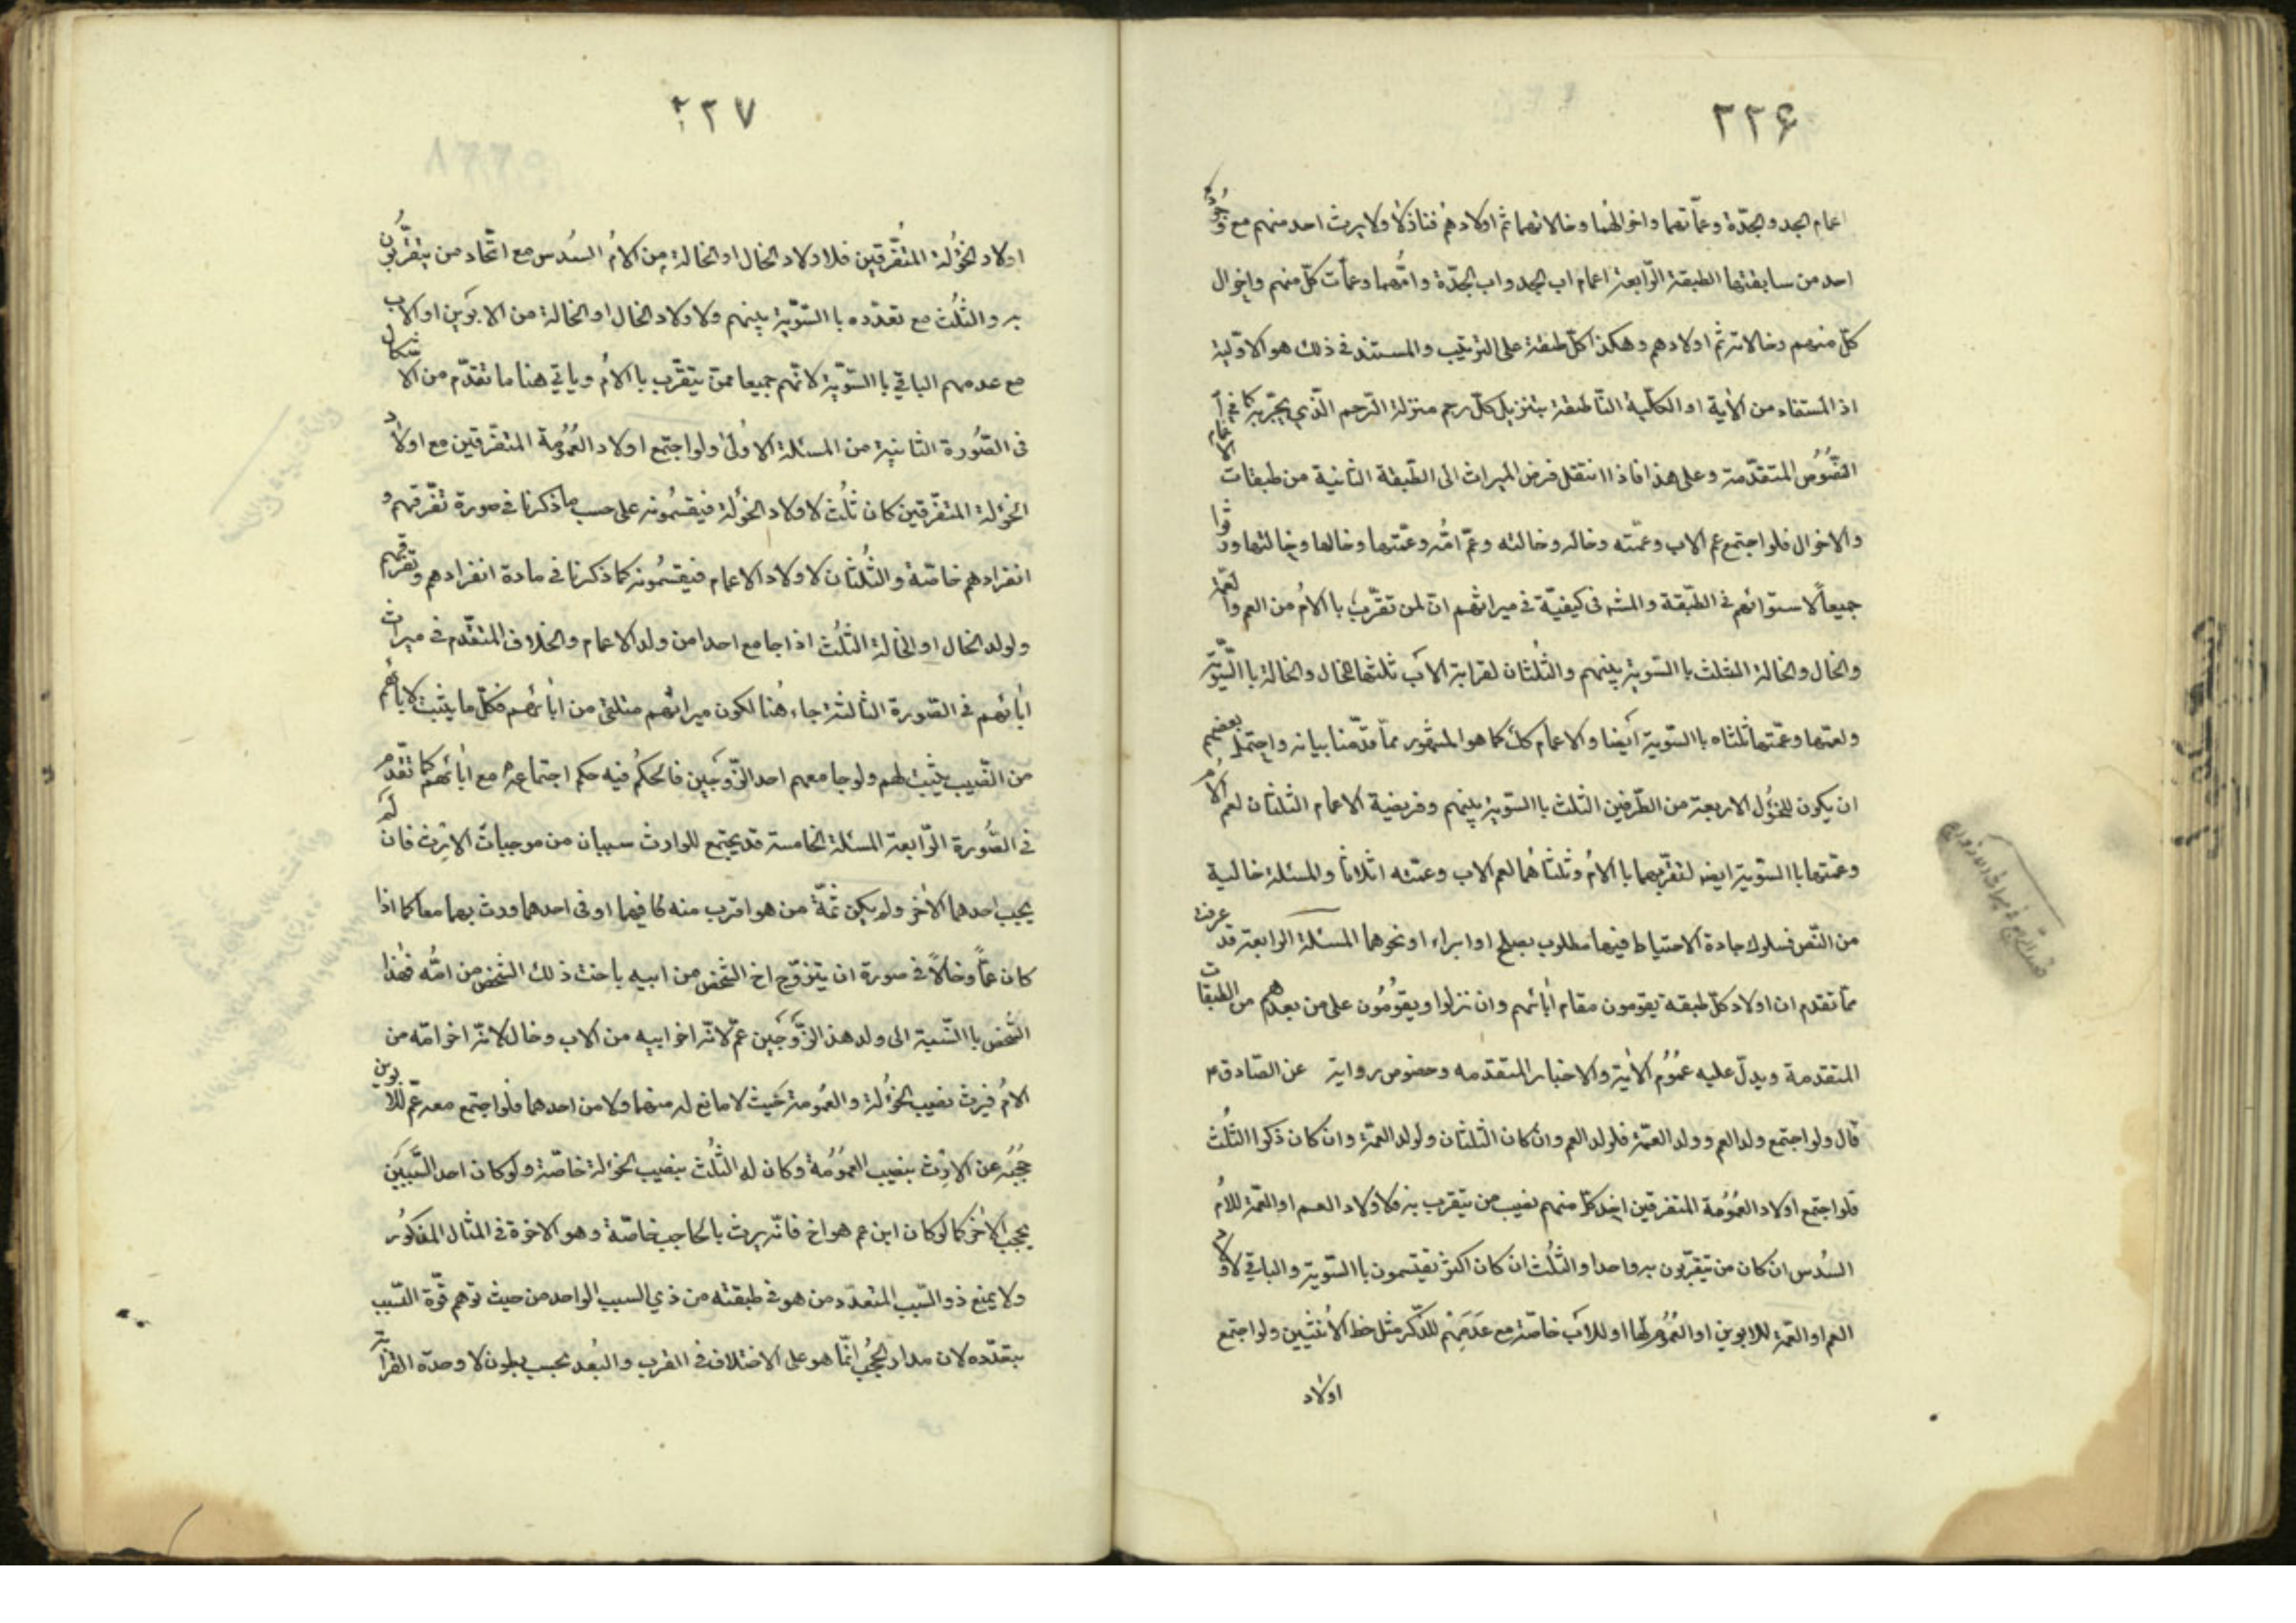 ٢٢۶
اعمام الجد والجدّة وعمّاتهما واخوالهما وخالاتهما ثم اولادهم فنازلا ولا يرث احد منهم مع وجُود
احد من سابقتها الطبقة الرّابعة اعمام اب الجد واب الجدّة وامّهما وعمّات كلّ منهم واخوال
كلّ منهم وخالاته ثم اولادهم وهكذا كلّ طبقة على الترتيب والمستند في ذلك هو الاوّلية
اذ المستفاد من الاٰية او الكلّية النّاطقة بتنزيل كلّ رحم منزلة الرّحم الّذي يجرّ به كما في
النّصُوص المتقدّمة وعلى هذا فاذا انتقل فرض الميراث الى الطّبقة الثانية من طبقات الاعمام
والاخوال فلو اجتمع عم الاب وعمّته وخاله وخالته وعمّ امّه وعمّتها وخالها وخالتها ورثوا
جميعاً لاستوائهم في الطّبقة والمشه فى كيفيّة في ميراثهم انّ لمن تقرّب باالامُ من العم والعّمة
والخال والخالة الثلث باالتسوية بينهم والثُلثان لقرابة الاَب ثلثها للخال والخالة باالتّسوّية
ولعمّها وعمّتها ثلثاه باالتسوية اَيضا والاعمام كلّ كما هو المشهُور ممّا قدّمنا بيانه واحتمل بعضهم
ان يكون للخؤُل الاربعة من الطّرفين الثلث باالتسوية بينهم وفريضة الاعمام الثلثان لعم الاُم
وعمّتها باالتسوّية ايضا لتقرّبهما باالامُ وثلثاهُما لعم الاب وعمّته اثلاثاً والمسئلة خالية
من النّص فسلوك جادة الاحتياط فيها مطلوب بصلح او ابراء او نحوهما المسئلة الرابعة قد عرفت
ممّا تقدم ان اولاد كلّ طبقة يقومون مقام اٰبائهم وان نزلوا ويقوُمُون على من بعدهم من الطبقات
المتقدمة ويدلّ عليه عمُوُم الاٰية والاخبار المتقدمه وخصُوص رواية عن الصّادق ع
قال ولو اجتمع ولد العم وولد العمّة فلولد العم وان كان الثلثان ولولد العمّة وان كان ذكرا الثُلث
فلو اجتمع اولاد العمُوُمة المتفرقين اخذ كلّ منهم نصيب من يتقرب به فلاولاد العم او العمّة للامُ
السُدس ان كان من يتقرّبون به واحدا والثُلث ان كان اكثر يقتسمون باالتسوية والباقي لاولاد
العم او العمّة للابوين او العمُوُمة لها او للاَب خاصّة مع عَدَمِهم للذّكر مثل حظ الاُنثيين ولو اجتمع
اولاد
٢٢٧
اولاد الخؤُلة المُتفّرقين فلاولاد الخال او الخالة مِن الامُ السُدس مع اتّحاد من يتقرّبون
به والثلُث مع تعدّده باالتسوّية بينهم ولاولاد الخال او الخالة من الابوَين او الاب
مع عدمهم الباقي باالتسوّية لانّهم جميعا ممّن يتقرّب باالامُ وياتي هنا ما تقدّم من الاشكال
فى الصُّورة الثانية من المسئلة الاوُلىٰ ولو اجتمع اولاد العمُوُمة المتفرّقين مع اولاد
الخؤُلة المتفرّقين كان ثلُث لاولاد الخؤُلة فيقسمُونه على حسب ما ذكرنا في صورة تفّرقهم و
انفرادهم خاصّة والثُلثان لاولاد الاعمام فيقسمُونه كما ذكرنا فى مادة انفرادهم وتفّرقهم
ولولد الخال او الخالة الثلُث اذا جامع احدا من ولد الاعمام والخلاف المتقّدم في ميراث
اٰبائهم في الصّورة الثالثة جاء هُنا لكون ميراثهم متلقىّ من اٰبائهم فكلّ ما يثبت لاٰبائهم
من النّصيب يثبت لهم ولو جامعهم احد الزّوجَين فالحكُم فيه حكم اجتماعه مع اٰبائهم كما تقدّم
في الصُّورة الرّابعة المسئلة الخامسة قد يجتمع للوارث سببان من موجبات الارث فان لم
يحجب احدهما الاٰخر ولم يكن ثمّة من هو اقرب منه فيهما او فى احدهما ورث بهما معا كما اذا
كان عمّاً وخالاً في صورة ان يتزوّج اخ الشخص من ابيه باخت ذلك الشخص من امّه فهذا
الشّخص باالنّسبة الى ولد هذا الزّوَجَين عمّ لانّه اخو ابيه من الاب وخال لانّه اخو امّه من
الامُ فيرث نصيب الخؤُلة والعمُومة حَيث لا مانع له منهما ولا من احدهما فلو اجتمع معه عمّ للابوين
حجَبُه عن الارث بنصيب العموُمُة وكان له الثلُث بنصيب الخؤلة خاصّة ولو كان احد السَّببَين
يحجب الاٰخر كما لو كان ابن عم هو اخ فانّه يرث بالحاجب خاصّة وهو الاخوة في المثال المذكوُر
ولا يمنع ذو السّبب المتعدّد من هو في طبقته من ذي السبب الواحد من حيث توهم قوّة السّبب
بتعدّده لان مدار الحجُب انّما هو على الاختلاف في القرب والبُعد بحسب بطون لا وحدة القرابة